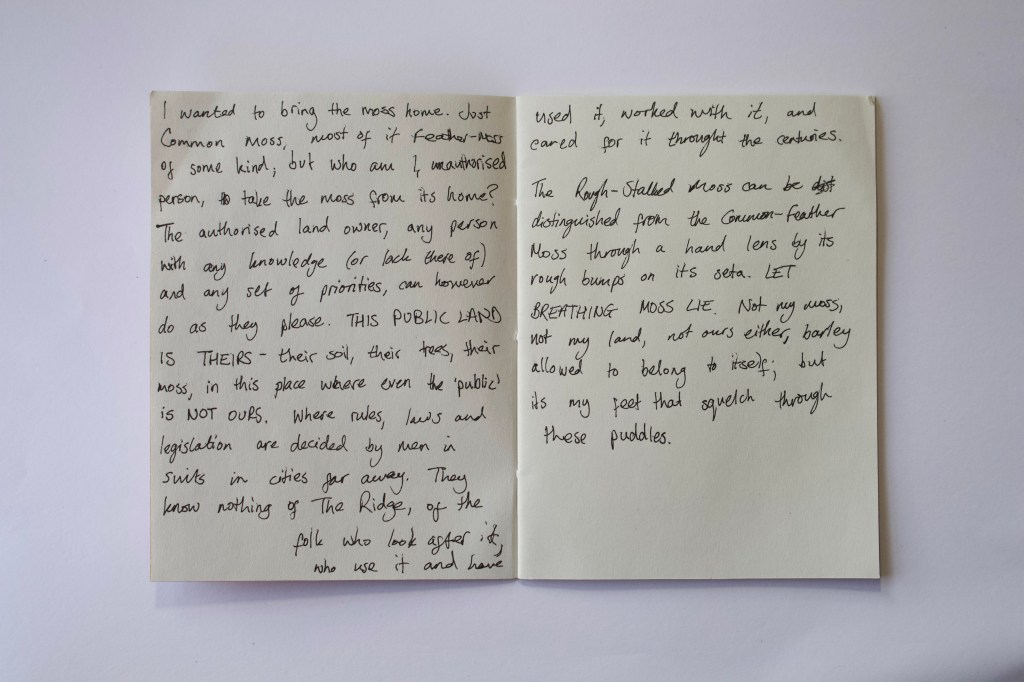 I wanted to bring the moss home. Just
Common moss, most of it feather-moss
of some kind; but who am I, unauthorised
person, to take the moss from its home?
The authorised land owner, any person
with any knowledge (or lack there of)
and any set of priorities, can however
do as they please. THIS PUBLIC LAND
IS THEIRS - their soil, their trees, their
moss, in this place where even the 'public'
is NOT OURS. Where rules, laws and
legislation are decided by men in
suits in cities far away. They
know nothing of The Ridge, of the
folk who look after it,
who use it and have
used it, worked with it, and
cared for it throught the centuries.
The Rough-Stalked Moss can be
distinguished from the Common-Feather
Moss through a hand lens by its
rough bumps on its seta. LET
BREATHING MOSS LIE. Not my moss,
not my land, not ours either, barley
allowed to belong to itself; but
its my feet that squelch through
these puddles.